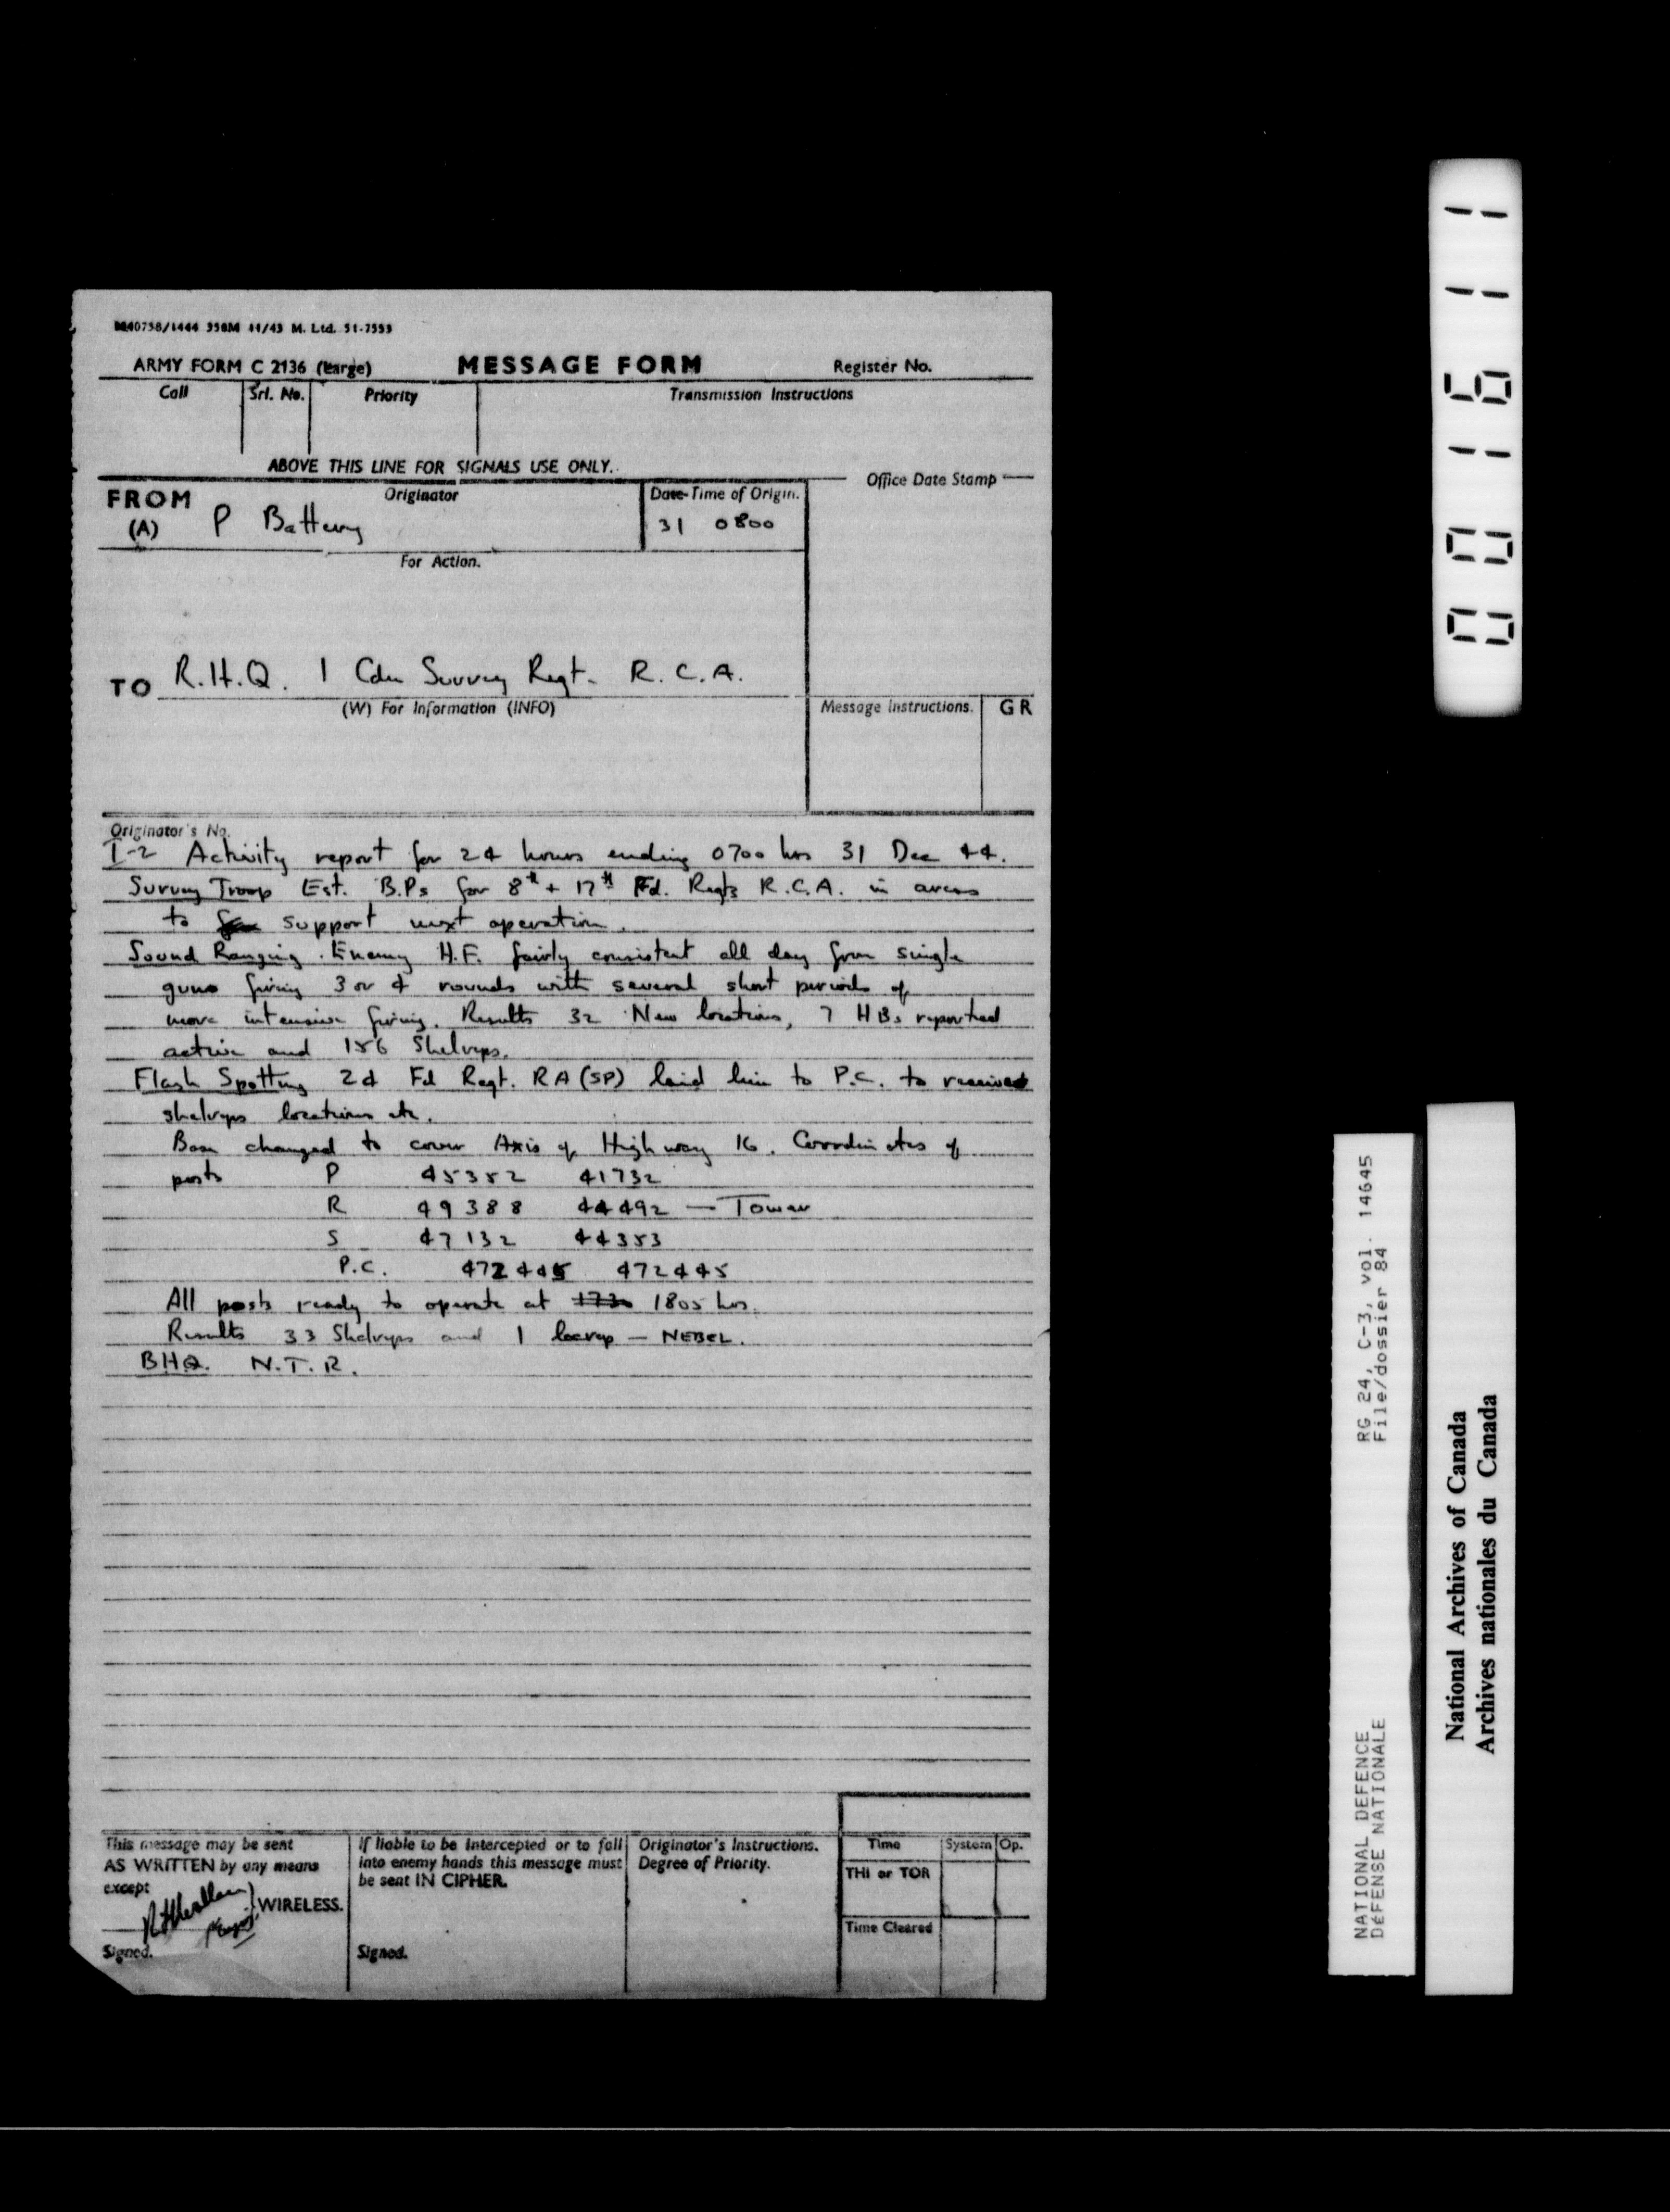 M40758/1444 350M 11/43 M. Ltd. 51-7553
ARMY FORM C 2136 (Large) MESSAGE FORM Register No.
Call Srl. No. Priority Transmission Instructions
ABOVE THIS LINE FOR SIGNALS USE ONLY.
Office Date Stamp
FROM Originator Date-Time of Origin.
(A) P Battery 31 0800
For Action.
TO R.H.Q. 1 Cdn Survey Regt. R.C.A.
(W) For Information (INFO) Message Instructions. GR
Originator's No.
I-2 Activity report for 24 hours ending 0700 hrs 31 Dec 44.
Survey Troop Est. B.Ps for 8th + 17th Fd. Regts R.C.A. in areas
to support next operation.
Sound Ranging. Enemy H.F. fairly consistent all day from single
guns firing 3 or 4 rounds with several short periods of
more intensive firing. Results 32 New locations, 7 HBs reported
active and 156 Shelreps.
Flash Spotting 24 Fd Regt. RA (SP) laid line to P.C. to receive
shelreps locations etc.
Base changed to cover Axis of Highway 16. Coordinates of
posts P 45352 41732
R 49388 44492 — Tower
S 47132 44353
P.C. 472445 472445
All posts ready to operate at 1730 1805 hrs.
Results 33 Shelreps and 1 locrep — NEBEL.
BHQ. N.T.R.
This message may be sent
AS WRITTEN by any means
except
WIRELESS.
Signed.
If liable to be intercepted or to fall
into enemy hands this message must
be sent IN CIPHER.
Signed.
Originator's Instructions.
Degree of Priority.
Time System Op.
THI or TOR
Time Cleared
001611
RG 24, C-3, vol. 14645
File/dossier 84
NATIONAL DEFENCE
DÉFENSE NATIONALE
National Archives of Canada
Archives nationales du Canada